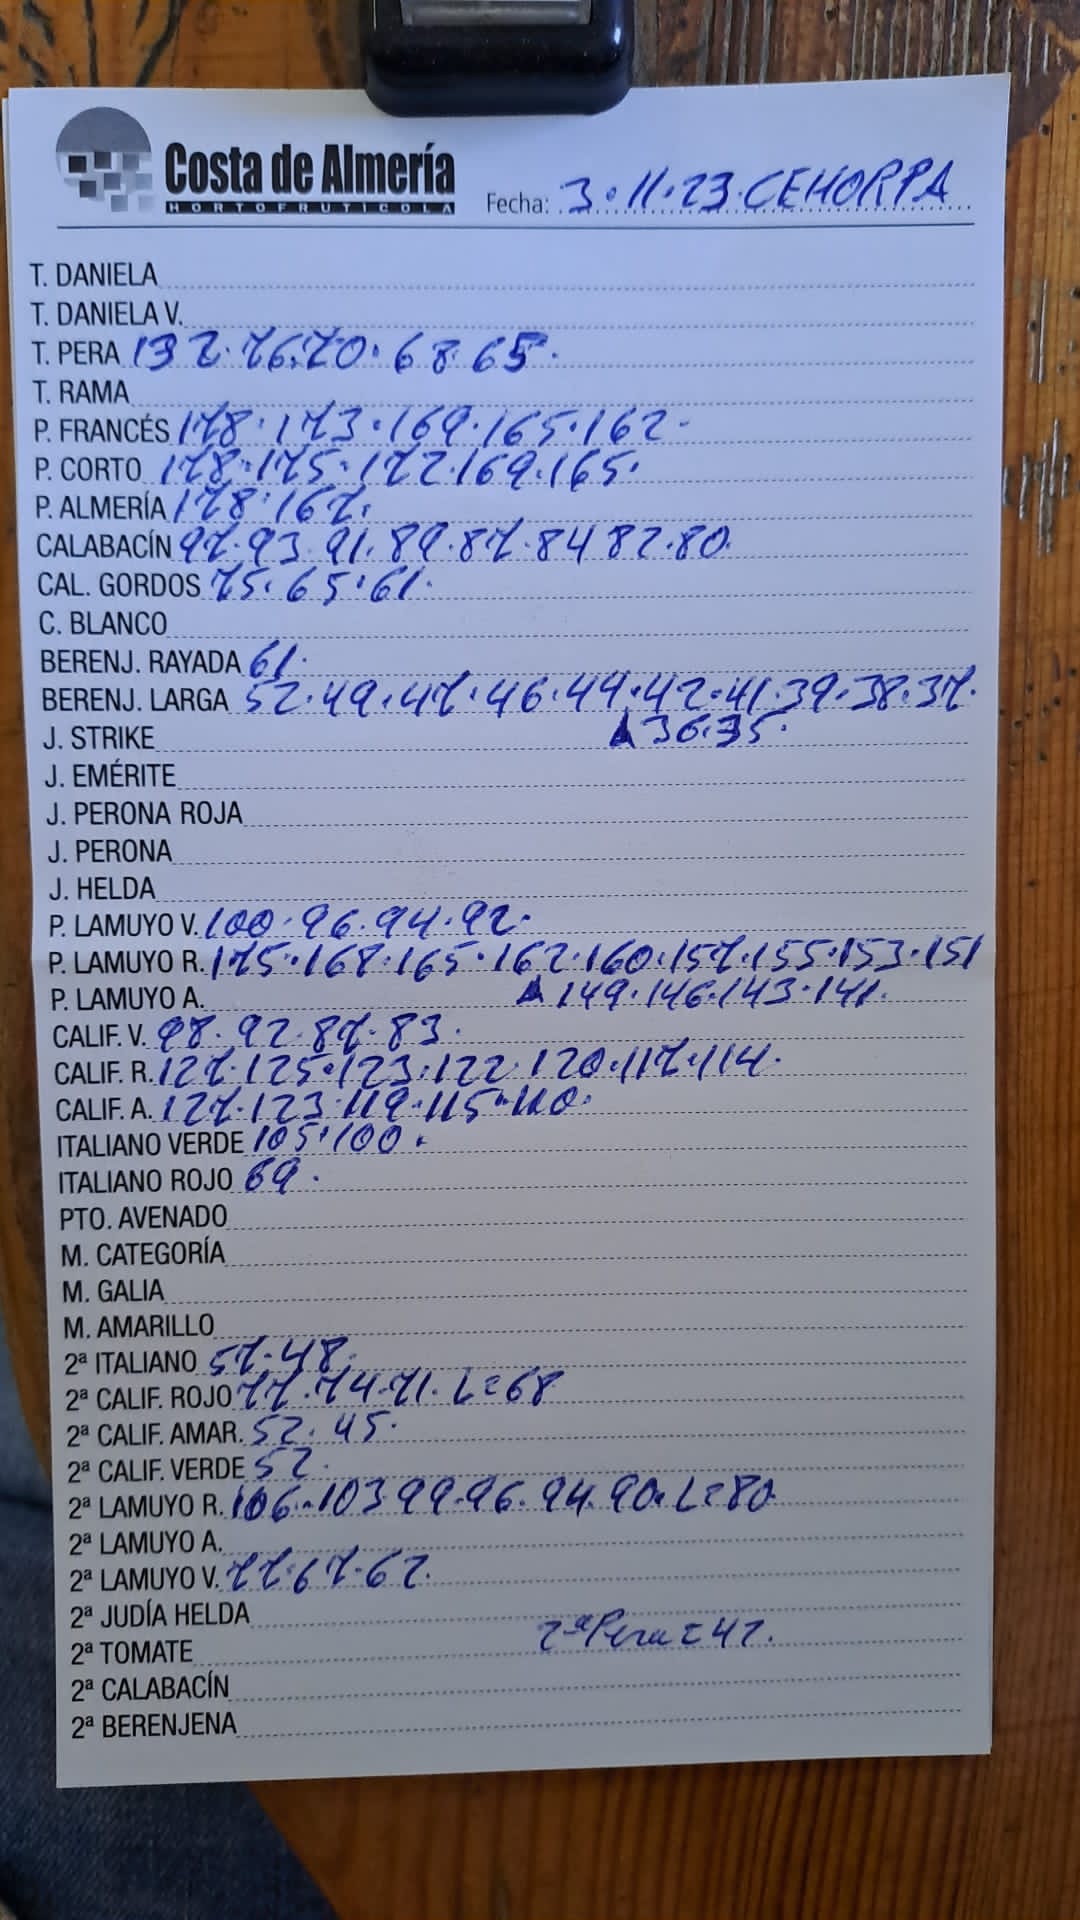 Costa de Almería
HORTOFRUTICOLA
Fecha: 3.11.23.CEHORPA
T. DANIELA
T. DANIELA V.
T. PERA 132.76.70.68.65.
T. RAMA
P. FRANCÉS 178.173.169.165.162.
P. CORTO 178.175.172.169.165.
P. ALMERÍA 178.167.
CALABACÍN 97.93.91.89.87.84 82.80.
CAL. GORDOS 75.65.61.
C. BLANCO
BERENJ. RAYADA 61.
BERENJ. LARGA 52.49.47.46.44.42.41.39.38.37.
J. STRIKE 36.35.
J. EMÉRITE
J. PERONA ROJA
J. PERONA
J. HELDA
P. LAMUYO V. 100.96.94.92.
P. LAMUYO R. 175.168.165.162.160.157.155.153.151
P. LAMUYO A. 149.146.143.141.
CALIF. V. 98.92.87.83.
CALIF. R. 127.125.123.122.120.117.114.
CALIF. A. 127.123.119.115.110.
ITALIANO VERDE 105.100.
ITALIANO ROJO 69.
PTO. AVENADO
M. CATEGORÍA
M. GALIA
M. AMARILLO
2ª ITALIANO 57.48.
2ª CALIF. ROJO 77.74.71.L=68
2ª CALIF. AMAR. 52.45.
2ª CALIF. VERDE 52.
2ª LAMUYO R. 106.103 99.96.94.90.L=80
2ª LAMUYO A.
2ª LAMUYO V. 77.67.62.
2ª JUDÍA HELDA
2ª Pera=42.
2ª TOMATE
2ª CALABACÍN
2ª BERENJENA